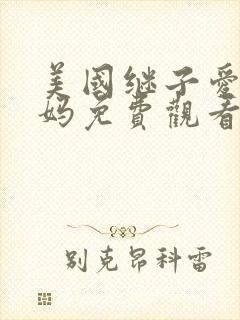 美國继子爱
妈免費觀看
别克昂科雷